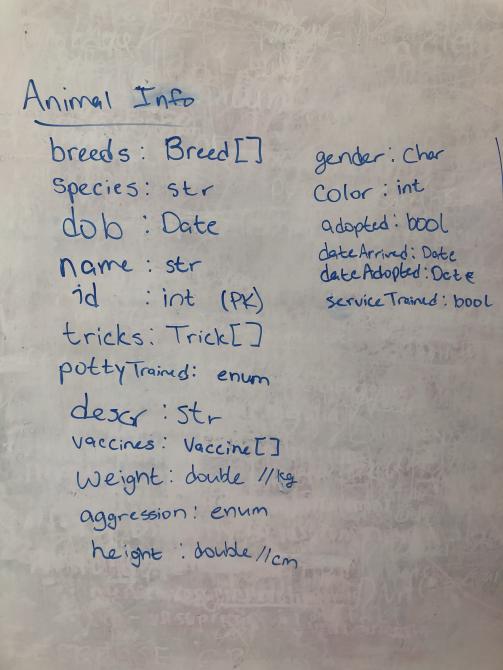 Animal Info
breeds: Breed[]
species: str
dob : Date
name : str
id : int (PK)
tricks: Trick[]
pottyTrained: enum
descr : str
vaccines: Vaccine[]
weight: double //kg
aggression: enum
height : double //cm
gender: Char
Color : int
adopted: bool
dateArrived: Date
dateAdopted: Date
serviceTrained: bool